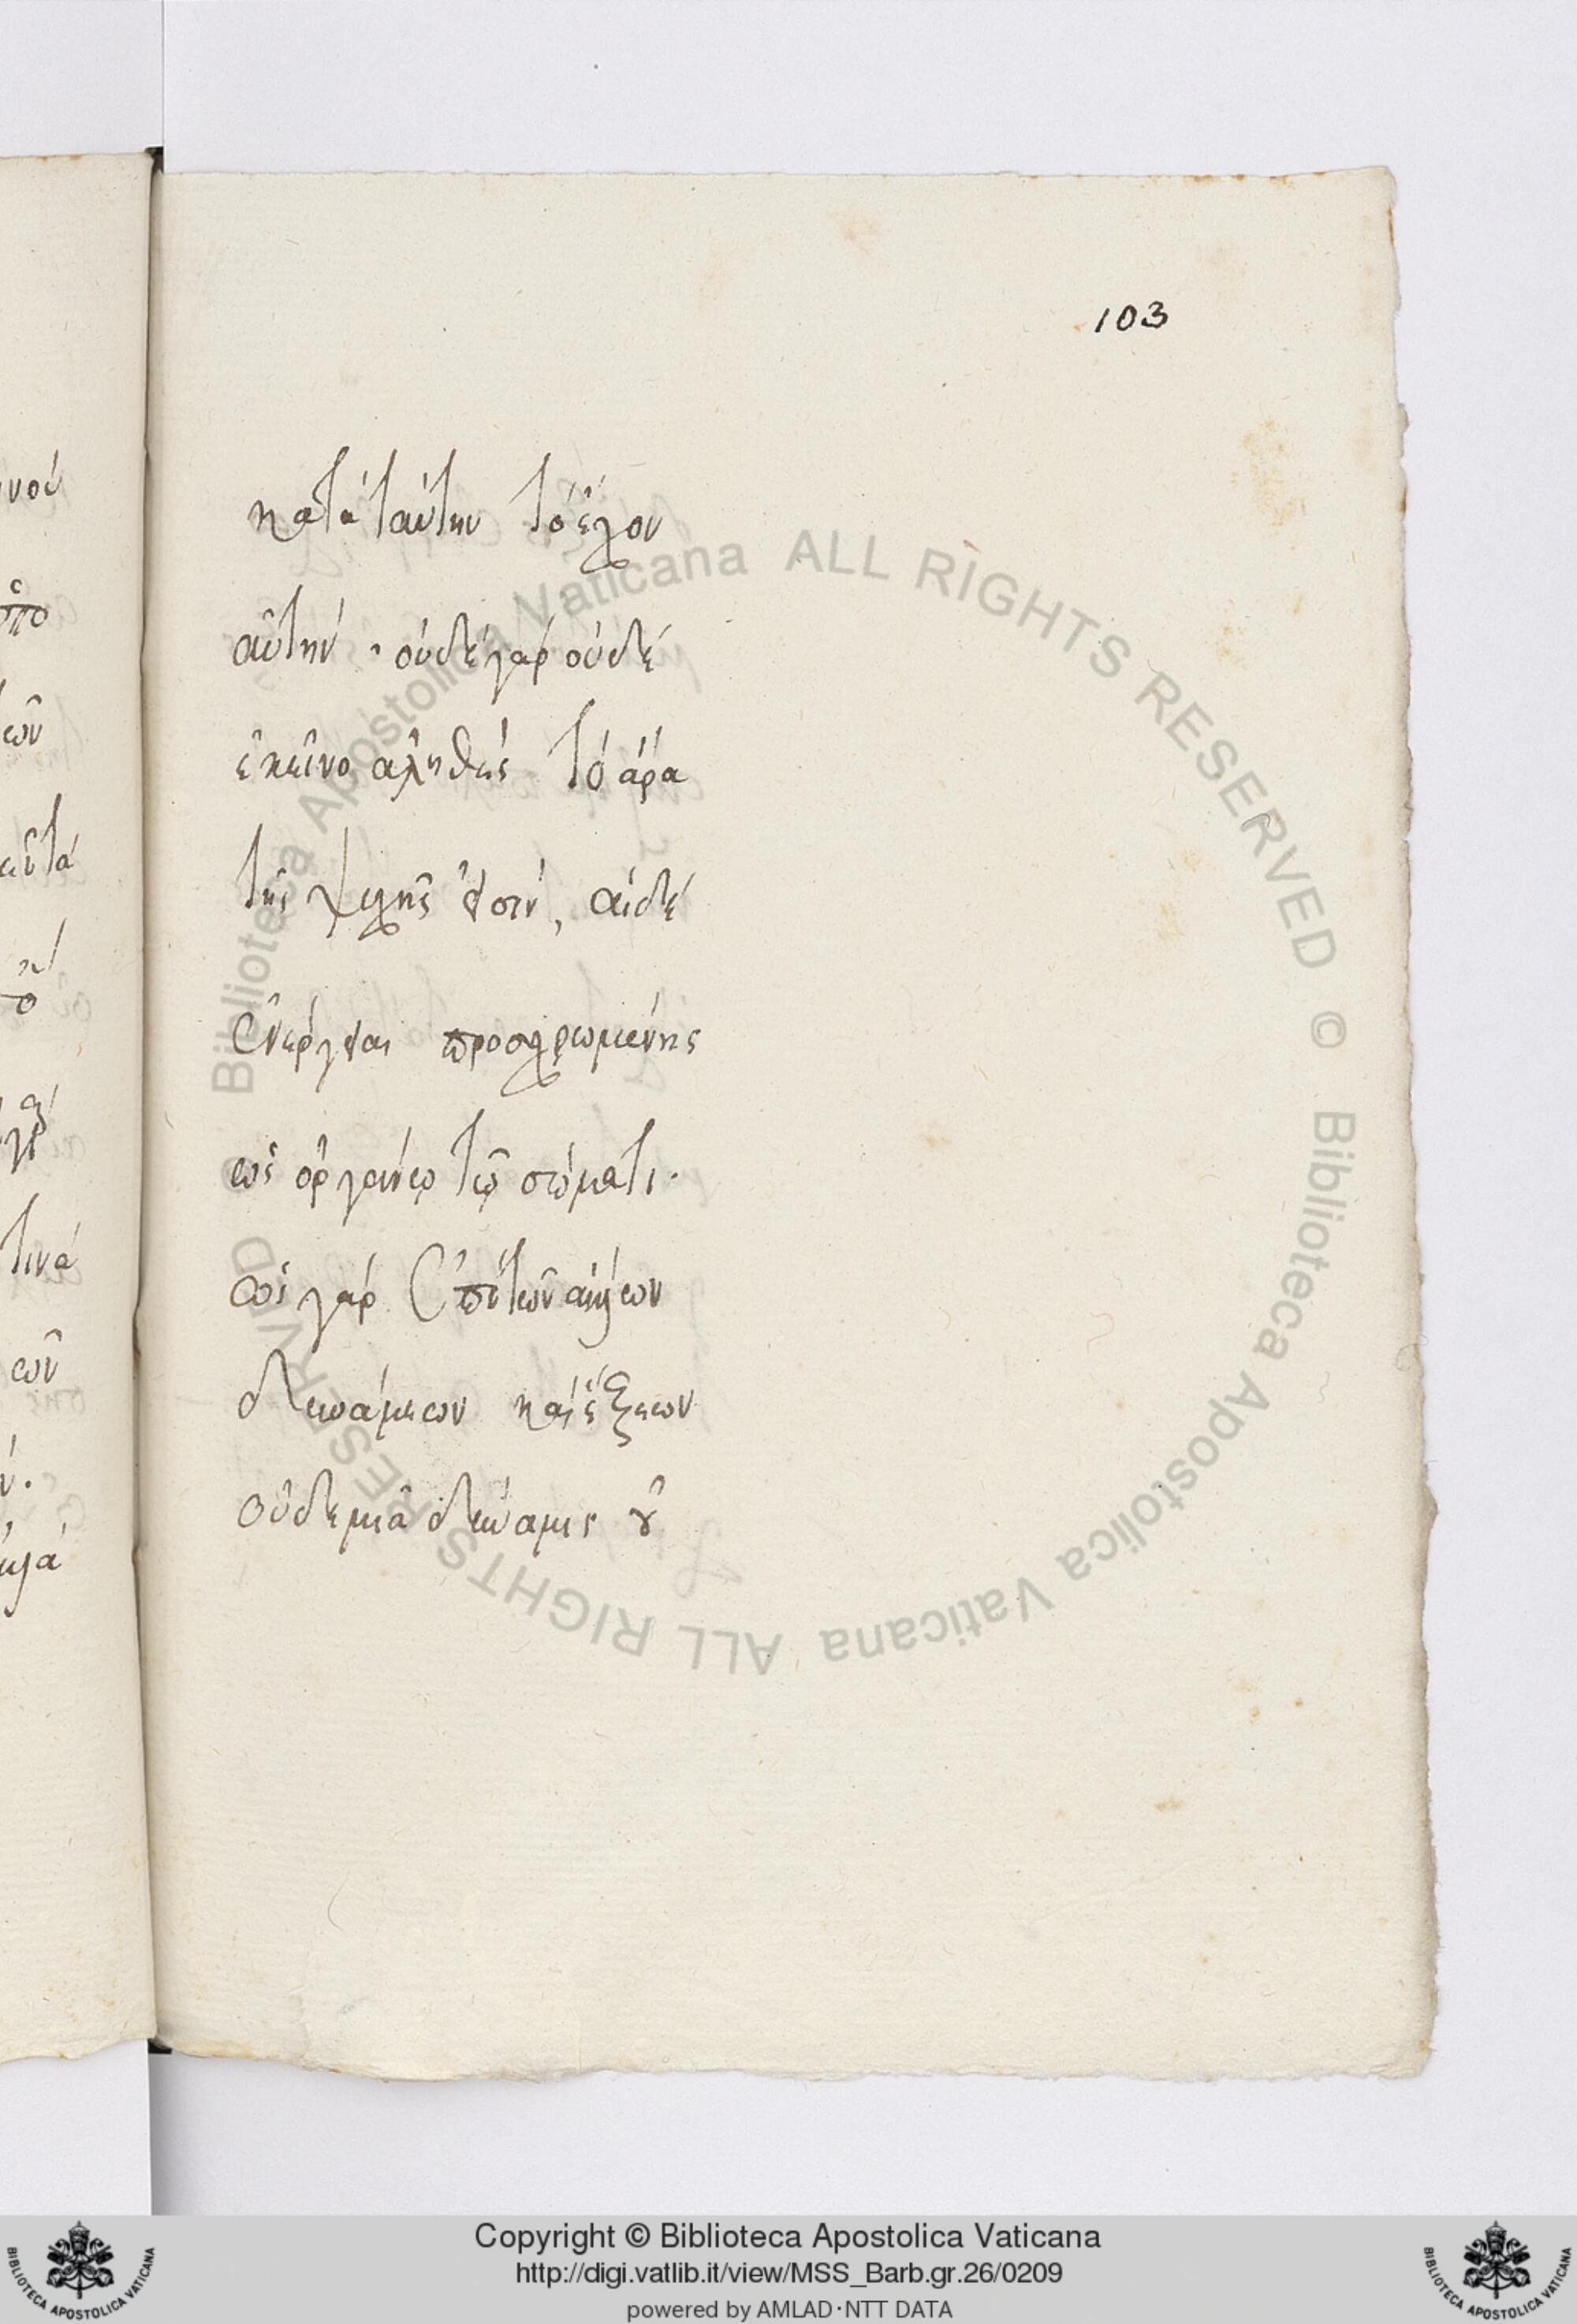 103
κατὰ ταύτην τὸ ἔχον
αὐτήν · οὐδὲ γὰρ οὐδὲ
ἐκεῖνο ἀληθὲς τὸ ἆρα
τῆς ψυχῆς εἰσιν, αἱ δὲ
ἐνέργειαι προσχρωμένης
ὡς ὀργάνῳ τῷ σώματι.
ὡς γὰρ ἐπὶ τῶν
δυνάμεων καὶ ἕξεων
οὐδεμία δύναμις οὐ
τινά
Copyright © Biblioteca Apostolica Vaticana
http://digi.vatlib.it/view/MSS_Barb.gr.26/0209
powered by AMLAD·NTT DATA
BIBLIOTECA APOSTOLICA VATICANA
BIBLIOTECA APOSTOLICA VATICANA
Biblioteca Apostolica Vaticana ALL RIGHTS RESERVED ©
Biblioteca Apostolica Vaticana ALL RIGHTS RESERVED ©